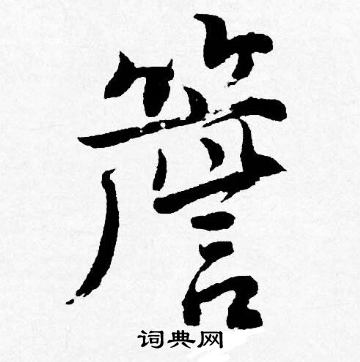 簷
词典网